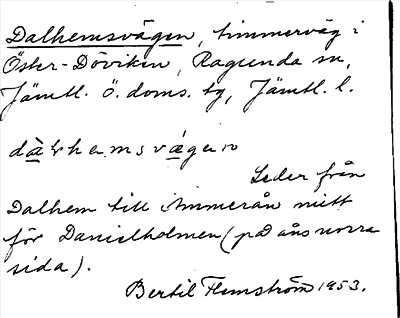 Dalhemsvägen, timmerväg i
Öster-Döviken, Ragunda sn,
Jämtl. ö. doms. tg, Jämtl. l.
dàlhemsvægen
Leder från
Dalhem till Ammerån mitt
för Danielholmen (på åns norra
sida).
Bertil Flemström 1953.